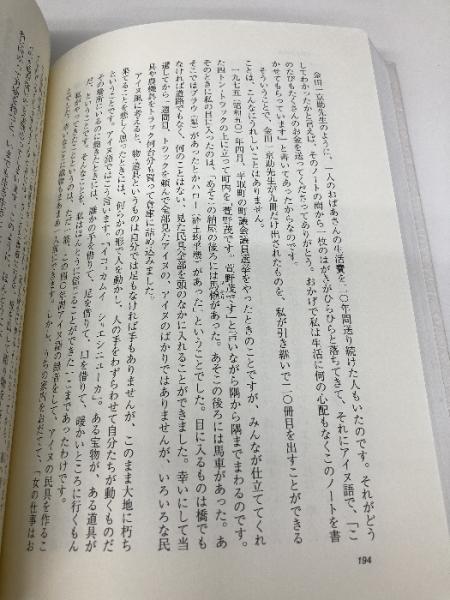 金田一京助先生のように、一人のおばあさんの生活費を二〇年間送り続けた人もいたのです。それがどう
してわかったかと言えば、そのノートの間から一枚のはがきがひらひらと落ちてきて、それにアイヌ語で、「こ
のたびもたくさんのお金を送ってくださってありがとう。おかげで私は生活に何の心配もなくこのノートを書
かせてもらっています」と書いてあったからなのです。
そういうことで、金田一京助先生が九冊だけ出されたものを、私が引き継いで二〇冊目を出すことができる
ことは、こんなにうれしいことはありません。
一九七五(昭和五〇)年四月、平取町の町議会議員選挙をやったときのことですが、みんなが仕立ててくれ
た四トン・トラックの上に立って町内を「萱野茂です、萱野茂です」と言いながら隅から隅までまわるのです。
そのときに私の目に入ったのは、「あそこの納屋の後ろには馬橇があった。あそこの後ろには馬車があった。あ
そこではプラウ(犂)があったとかハロー(砕土均平機)があった」ということでした。目に入るものは橋でも
なければ道路でもなく、何のことはない、見た民具全部を頭のなかに入れることができました。幸いにして当
選してから一週間目、トラックを頼んで全部見たアイヌの、アイヌのばかりではありませんが、いろいろな民
具や農機具をトラック何台分も買って倉庫に詰め込みました。
アイヌ風に考えると、物、道具というものは自分では足もなければ手もありませんが、このまま大地に朽ち
果てることを悲しく思ったときには、何らかの形で人を動かし、人の手をわずらわせて自分たちが動くものだ
そうです。アイヌ語ではこう言います。「イヨッカムイ シュエシニューカ」。ある宝物が、ある道具が
その場所にいるのに飽きたときには、誰かの手を借りて、足を借りて、口を借りて、暖かいところに行くもん
だ、という。そんなことを、私はほんとうに信じることができたし、ここまであったわけです。